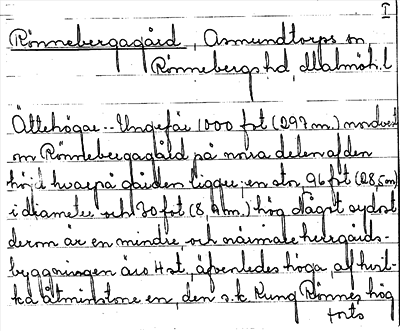 I
Rönnebergagård, Asmundtorps sn
Rönnebergs hd, Malmöh. l
Ättehögar. - Ungefär 1000 fot (297 m.) nordvest
om Rönnebergagård på norra delen af den
höjd hvarpå gården ligger, en stor, 96 fot (28,5 m)
i diameter och 30 fot (8,9 m.) hög. Något sydost
derom är en mindre, och närmare herrgårds-
byggningen äro 4 st., äfvenledes höga, af hvil-
ka åtminstone en, den s.k. Kung Rönnes hög
forts